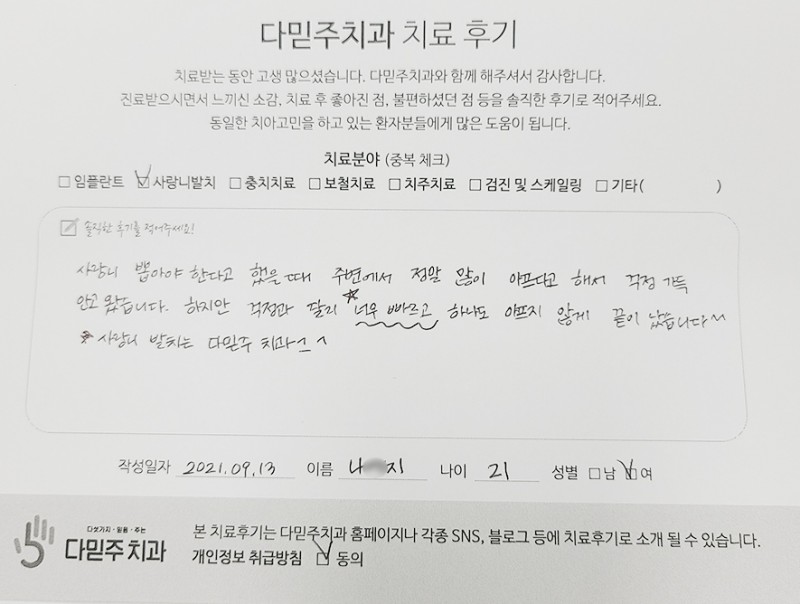 다믿주치과 치료 후기
치료받는 동안 고생 많으셨습니다. 다믿주치과와 함께 해주셔서 감사합니다.
진료받으시면서 느끼신 소감, 치료 후 좋아진 점, 불편하셨던 점 등을 솔직한 후기로 적어주세요.
동일한 치아고민을 하고 있는 환자분들에게 많은 도움이 됩니다.
치료분야 (중복 체크)
□ 임플란트 ☑ 사랑니발치 □ 충치치료 □ 보철치료 □ 치주치료 □ 검진 및 스케일링 □ 기타( )
☑ 솔직한 후기를 적어주세요!
사랑니 뽑아야 한다고 했을 때 주변에서 정말 많이 아프다고 해서 걱정 가득
안고 왔습니다. 하지만 걱정과 달리 ☆너무 빠르고 하나도 아프지 않게 끝이 났습니다~
* 사랑니 발치는 다믿주 치과 ^_^
작성일자 2021.09.13 이름 나 지 나이 21 성별 □남 ☑여
다섯가지·믿음·주는
다믿주치과
본 치료후기는 다믿주치과 홈페이지나 각종 SNS, 블로그 등에 치료후기로 소개 될 수 있습니다.
개인정보 취급방침 ☑ 동의